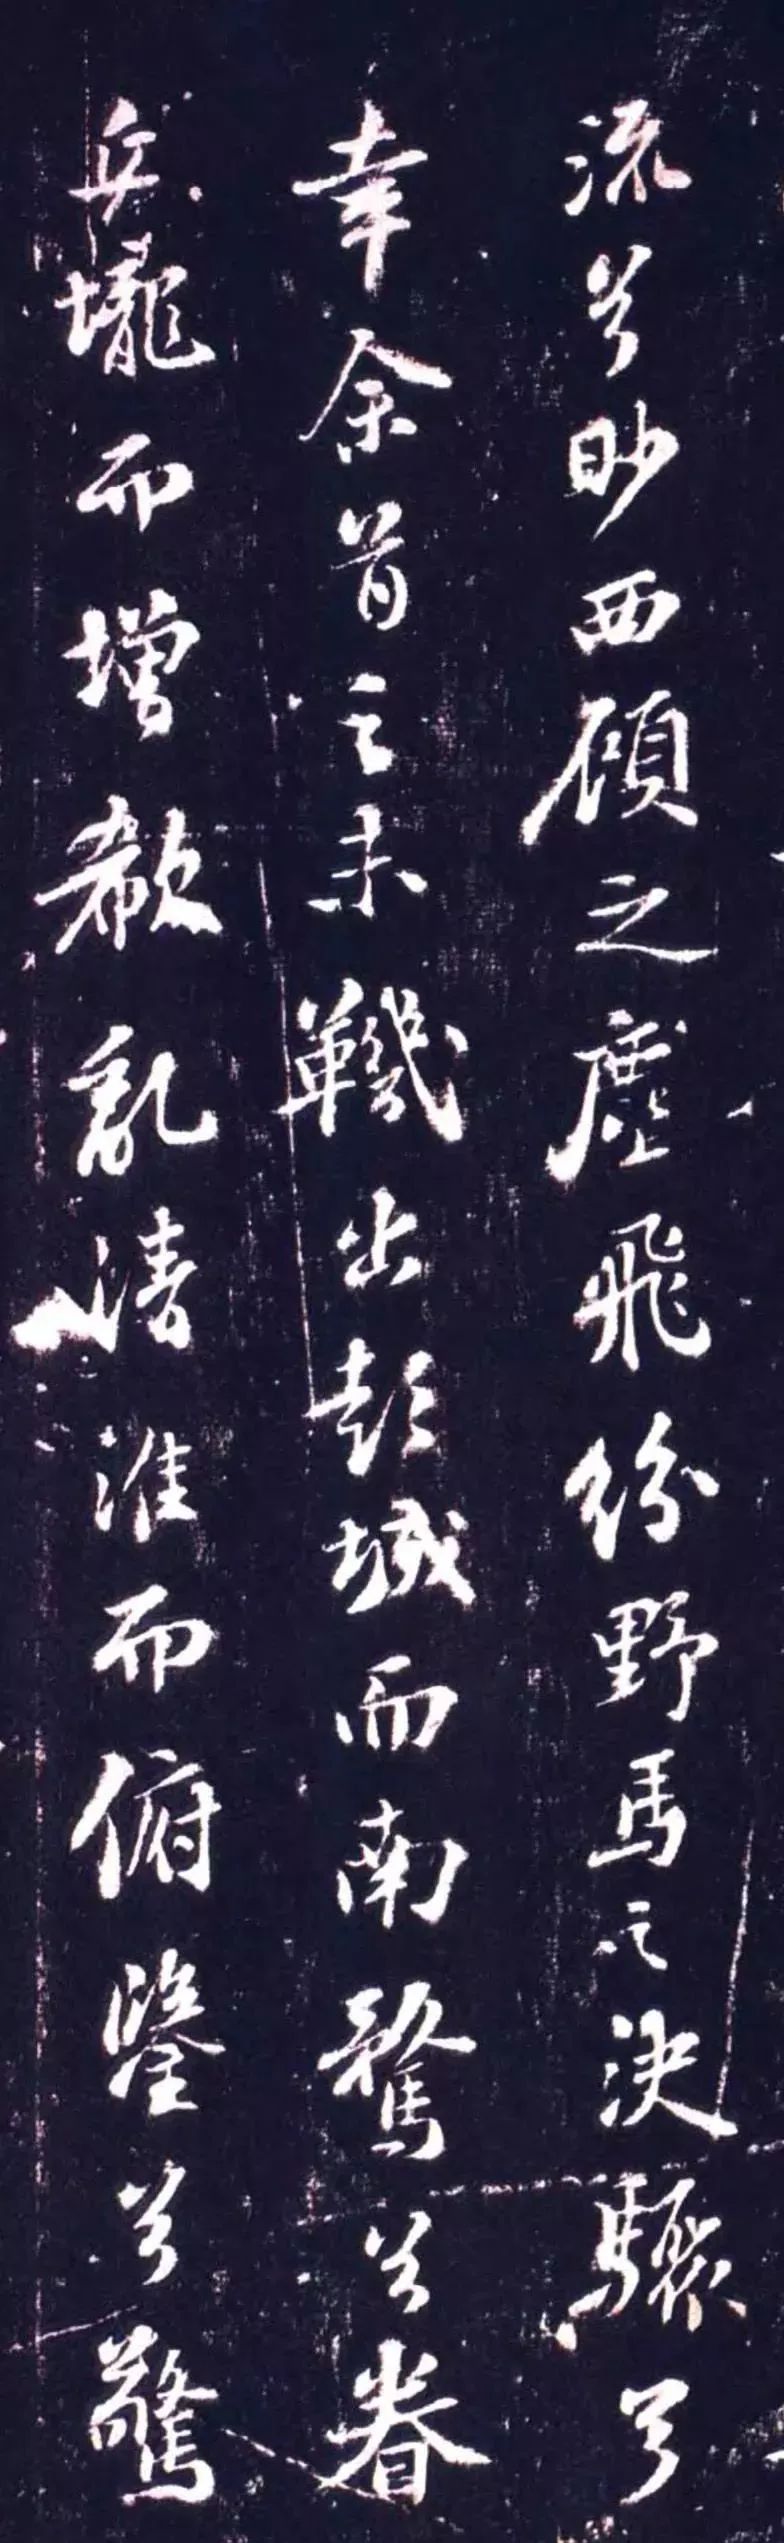 流兮眇西顧之塵飛紛野馬之決驟兮
幸余首之未鞿出彭城而南騖兮眷
丘壠而增欷亂清淮而俯鑒兮驚